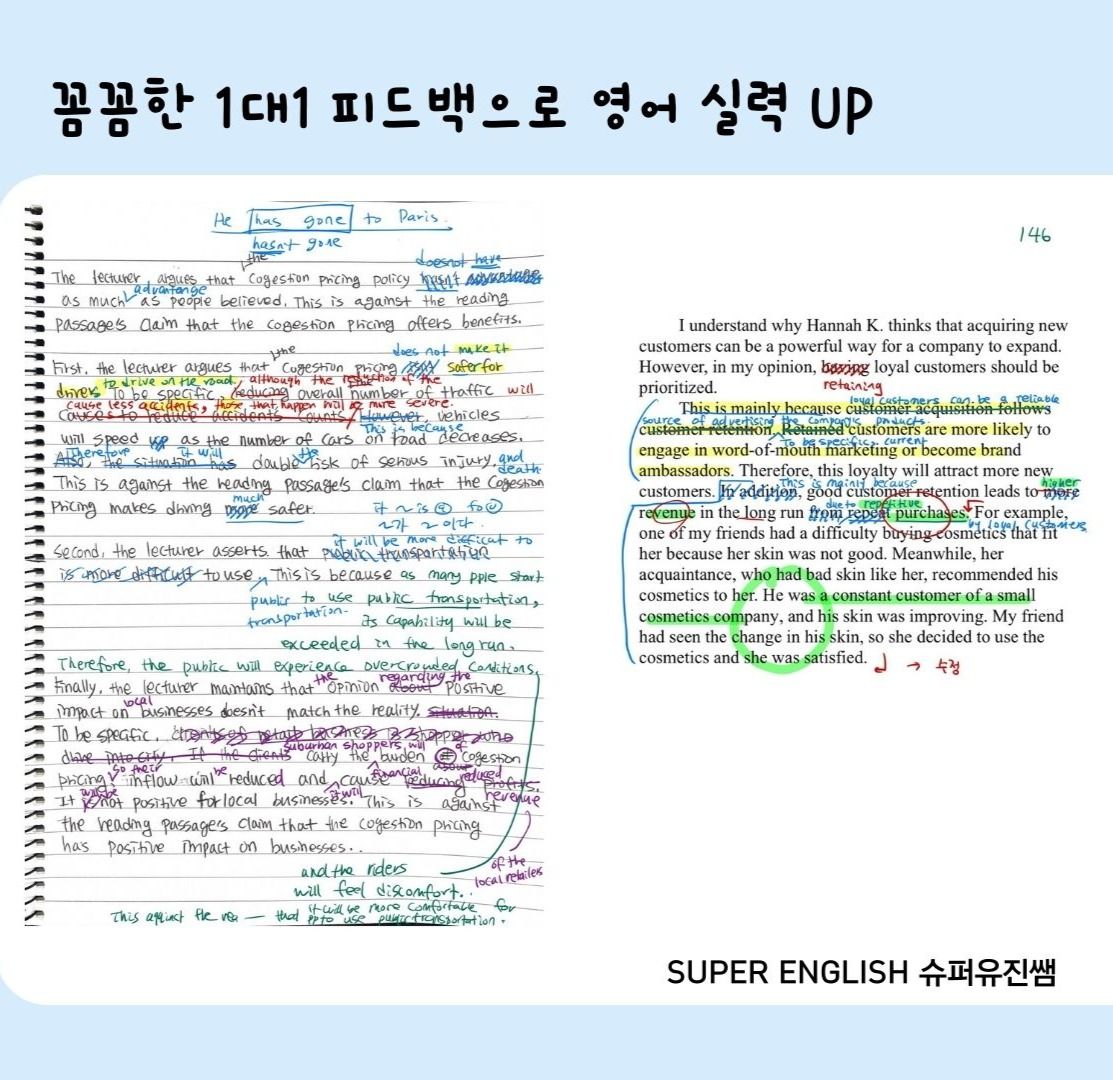 꼼꼼한 1대1 피드백으로 영어 실력 UP
He has gone to Paris.
hasn't gone
the
does not have
The lecturer argues that Cogestion pricing policy hasn't
advantange
as much as people believed. This is against the reading
passage's claim that the cogestion pricing offers benefits.
the
does not make it
First, the lecturer argues that Cogestion pricing safer for
to drive on the road. although the reduction of the
drivers To be specific, reducing overall number of traffic will
cause less accidents, those that happen will be more severe.
cause to reduce accidents counts, However, vehicles
This is because
will speed up as the number of cars on road decreases.
Therefore it will the
Also, the situation has double risk of serious injury and death
This is against the reading passage's claim that the Cogestion
much
Pricing makes driving more safer.
it will be more difficult to
Second, the lecturer asserts that public transportation
is more difficult to use, This is because as many pple start
public transportation.
to use public transportation,
its capability will be
exceeded in the long run.
Therefore, the public will experience overcrowded conditions,
the regarding the
Finally, the lecturer maintains that opinion about positive
local
impact on businesses doesn't match the reality. situation.
To be specific,
drive into city. If the clients
suburban shoppers will of
carry the burden cogestion
so their be financial reduced
pricing inflow will reduced and cause reducing profits.
will be it will revenue
It is not positive for local businesses. This is against
the reading passage's claim that the cogestion pricing
has positive impact on businesses..
of the
local retailers
and the riders
will feel discomfort..
it will be more comfortable for
This against the rea — that pp to use public transportation.
146
I understand why Hannah K. thinks that acquiring new
customers can be a powerful way for a company to expand.
However, in my opinion, having loyal customers should be
retaining
prioritized.
This is mainly because customer acquisition follows
loyal customers can be a reliable
source of advertising the companys products.
customer retention. Retained customers are more likely to
To be specific, current
engage in word-of-mouth marketing or become brand
ambassadors. Therefore, this loyalty will attract more new
This is mainly because
higher
customers. In addition, good customer retention leads to more
due to repetitive
revenue in the long run from repeat purchases. For example,
by loyal customers
one of my friends had a difficulty buying cosmetics that fit
her because her skin was not good. Meanwhile, her
acquaintance, who had bad skin like her, recommended his
cosmetics to her. He was a constant customer of a small
cosmetics company, and his skin was improving. My friend
had seen the change in his skin, so she decided to use the
cosmetics and she was satisfied.
→ 수정
SUPER ENGLISH 슈퍼유진쌤